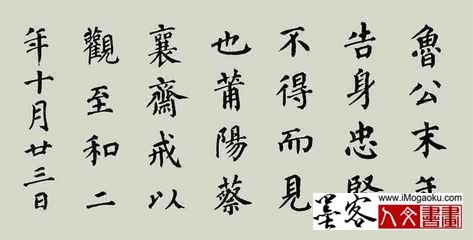 魯公末年
告身忠賢
不得而見
也莆陽蔡
襄齋戒以
觀至和二
年十月廿三日
墨客
www.iMogaoku.com
人文書畫